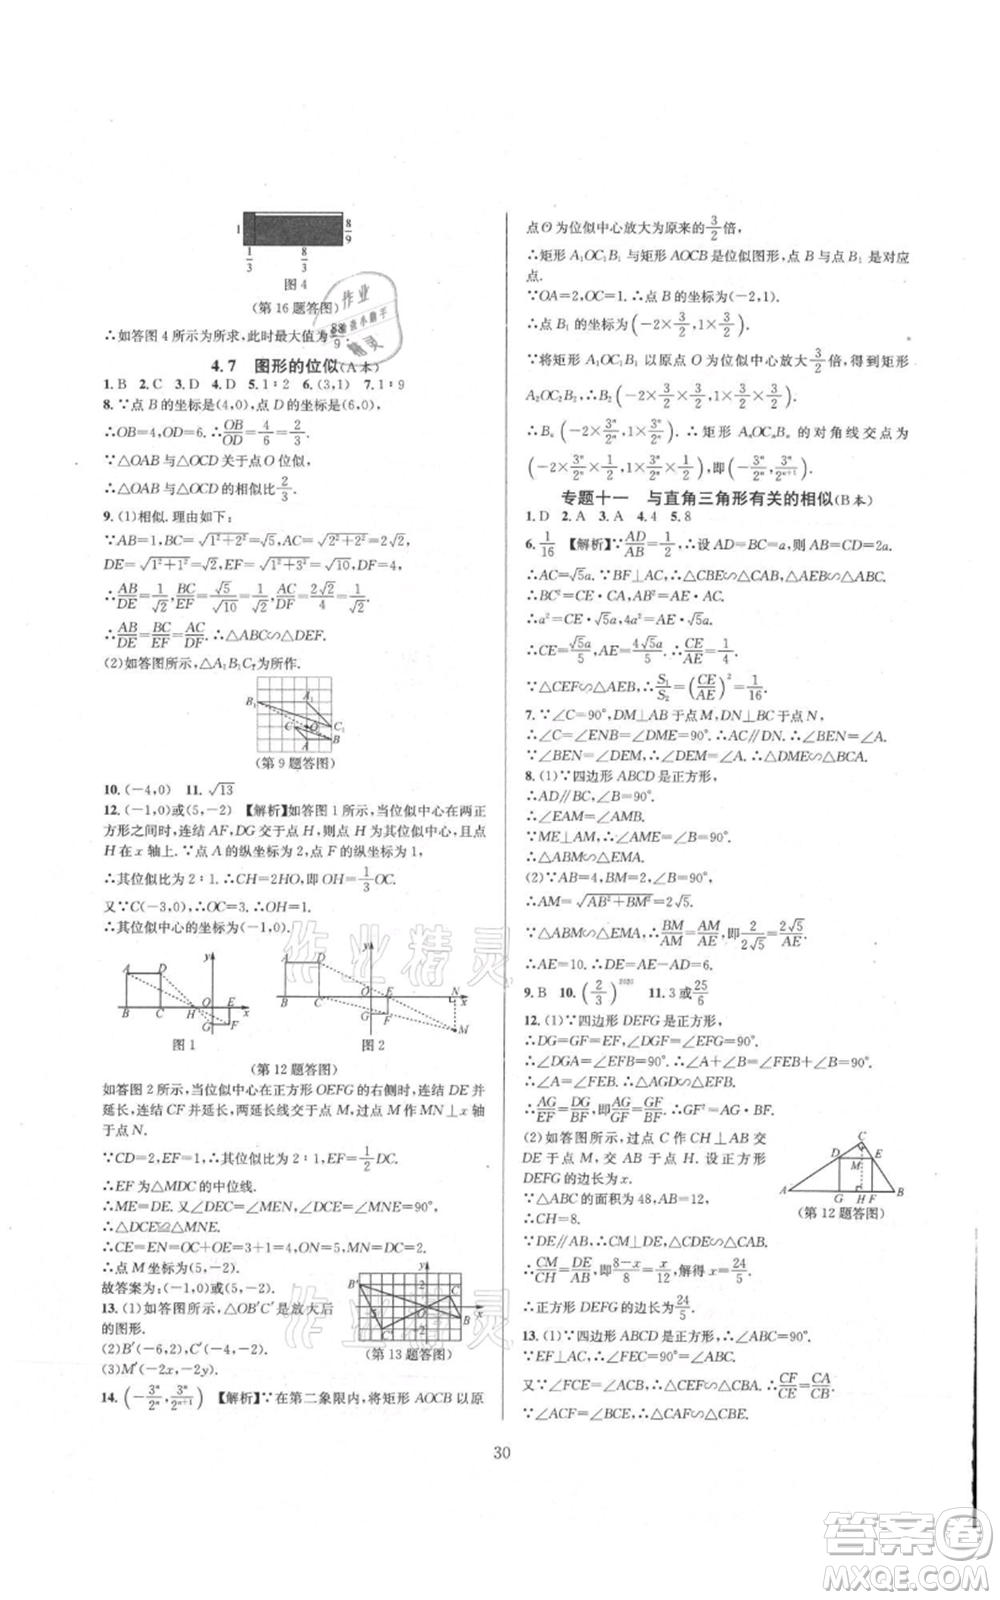 1
8/9
1/3
8/3
图4
(第16题答图)
∴如答图4所示为所求,此时最大值为88/9.
4.7 图形的位似(A本)
1.B 2.C 3.D 4.D 5.1∶2 6.(3,1) 7.1∶9
8.∵点B的坐标是(4,0),点D的坐标是(6,0),
∴OB=4,OD=6.∴OB/OD=4/6=2/3.
∵△OAB与△OCD关于点O位似,
∴△OAB与△OCD的相似比2/3.
9.(1)相似.理由如下:
∵AB=1,BC=√(1²+2²)=√5,AC=√(2²+2²)=2√2,
DE=√(1²+1²)=√2,EF=√(1²+3²)=√10,DF=4,
∴AB/DE=1/√2,BC/EF=√5/√10=1/√2,AC/DF=2√2/4=1/√2.
∴AB/DE=BC/EF=AC/DF.∴△ABC∽△DEF.
(2)如答图所示,△A₁B₁C₁为所作.
B₁ A₁ C₁ C O A B
(第9题答图)
10.(-4,0) 11.√13
12.(-1,0)或(5,-2) 【解析】如答图1所示,当位似中心在两正
方形之间时,连结AF,DG交于点H,则点H为位似中心,且点
H在x轴上.∵点A的纵坐标为2,点F的纵坐标为1,
∴其位似比为2∶1.∴CH=2HO,即OH=1/3OC.
又∵C(-3,0),∴OC=3.∴OH=1.
∴其位似中心的坐标为(-1,0).
A D y B C H O E x G F
图1
A D y B C O E F G N x M
图2
(第12题答图)
如答图2所示,当位似中心在正方形OEFG的右侧时,连结DE并
延长,连结CF并延长,两延长线交于点M,过点M作MN⊥x轴
于点N.
∵CD=2,EF=1,∴其位似比为2∶1.∴EF=1/2DC.
∴EF为△MDC的中位线.
∴ME=DE.又∵∠DEC=∠MEN,∠DCE=∠MNE,
∴△DCE≌△MNE.
∴CE=EN=OC+OE=3+1=4,MN=DC=2.∴ON=5.
∴点M坐标为(5,-2).
故答案为:(-1,0)或(5,-2).
13.(1)如答图所示,△OB′C′是放大后
的图形.
(2)B′(-6,2),C′(-4,-2).
(3)M′(-2x,-2y).
(第13题答图)
14.(-3ⁿ/2ⁿ,3ⁿ/2ⁿ⁺¹) 【解析】∵在第二象限内,将矩形AOCB以原
点O为位似中心放大为原来的3/2倍,
∴矩形A₁OC₁B₁与矩形AOCB是位似图形,点B与点B₁是对应
点.
∵OA=2,OC=1.∴点B的坐标为(-2,1).
∴点B₁的坐标为(-2×3/2,1×3/2).
∵将矩形A₁OC₁B₁以原点O为位似中心放大3/2倍,得到矩形
A₂OC₂B₂,∴B₂(-2×3/2×3/2,1×3/2×3/2).
∴Bₙ(-2×3ⁿ/2ⁿ,1×3ⁿ/2ⁿ).∴矩形AₙOCₙBₙ的对角线交点为
(-2×3ⁿ/2ⁿ×1/2,1×3ⁿ/2ⁿ×1/2),即(-3ⁿ/2ⁿ,3ⁿ/2ⁿ⁺¹).
专题十一 与直角三角形有关的相似(B本)
1.D 2.A 3.A 4.4 5.8
6.1/16 【解析】∵AD/AB=1/2,∴设AD=BC=a,则AB=CD=2a.
∴AC=√5a.∵BF⊥AC,∴△CBE∽△CAB,△AEB∽△ABC.
∴BC²=CE·CA,AB²=AE·AC.
∴a²=CE·√5a,4a²=AE·√5a.
∴CE=√5a/5,AE=4√5a/5.∴CE/AE=1/4.
∵△CEF∽△AEB,∴S₁/S₂=(CE/AE)²=1/16.
7.∵∠C=90°,DM⊥AB于点M,DN⊥BC于点N,
∴∠C=∠ENB=∠DME=90°.∴AC∥DN.∴∠BEN=∠A.
∵∠BEN=∠DEM,∴∠DEM=∠A.∴△DEM∽△BAC.
8.(1)∵四边形ABCD是正方形,
∴AD∥BC,∠B=90°.
∴∠EAM=∠AMB.
∵ME⊥AM,∴∠AME=∠B=90°.
∴△ABM∽△EMA.
(2)∵AB=4,BM=2,∠B=90°,
∴AM=√(AB²+BM²)=2√5.
∵△ABM∽△EMA,∴BM/AM=AM/AE,即2/2√5=2√5/AE.
∴AE=10.∴DE=AE-AD=10-4=6.
9.B 10.(2/3)²⁰²⁰ 11.3或25/6
12.(1)∵四边形DEFG是正方形,
∴DG=GF=EF,∠DGF=∠EFG=90°.
∴∠DGA=∠EFB=90°.∴∠A+∠ADG=90°.
∵∠C=90°,∴∠A+∠B=90°.∴∠B=∠ADG.∴△ADG∽△EBF.
∴AG/EF=DG/BF,即AG/GF=GF/BF.∴GF²=AG·BF.
(2)如答图所示,过点C作CH⊥AB交
DE于点M,交AB于点H.设正方形
DEFG的边长为x.
∵△ABC的面积为48,AB=12,
∴CH=8.
C D M E A G H F B
(第12题答图)
∵DE∥AB,∴CM⊥DE,△CDE∽△CAB.
∴CM/CH=DE/AB,即8-x/8=x/12,解得x=24/5.
∴正方形DEFG的边长为24/5.
13.(1)∵四边形ABCD是正方形,∴∠ACB=∠ACD=45°.
∵EF⊥AC,∴∠EFC=90°.∴∠FEC=∠FCE=45°.
又∵∠CFE=∠B=90°,∴△CEF∽△CAB.∴CF/CE=CA/CB.
∵∠ACF=∠BCE=45°,∴△CAF∽△CBE.
30
作业精灵
作业精灵
答案圈
MXQE.COM